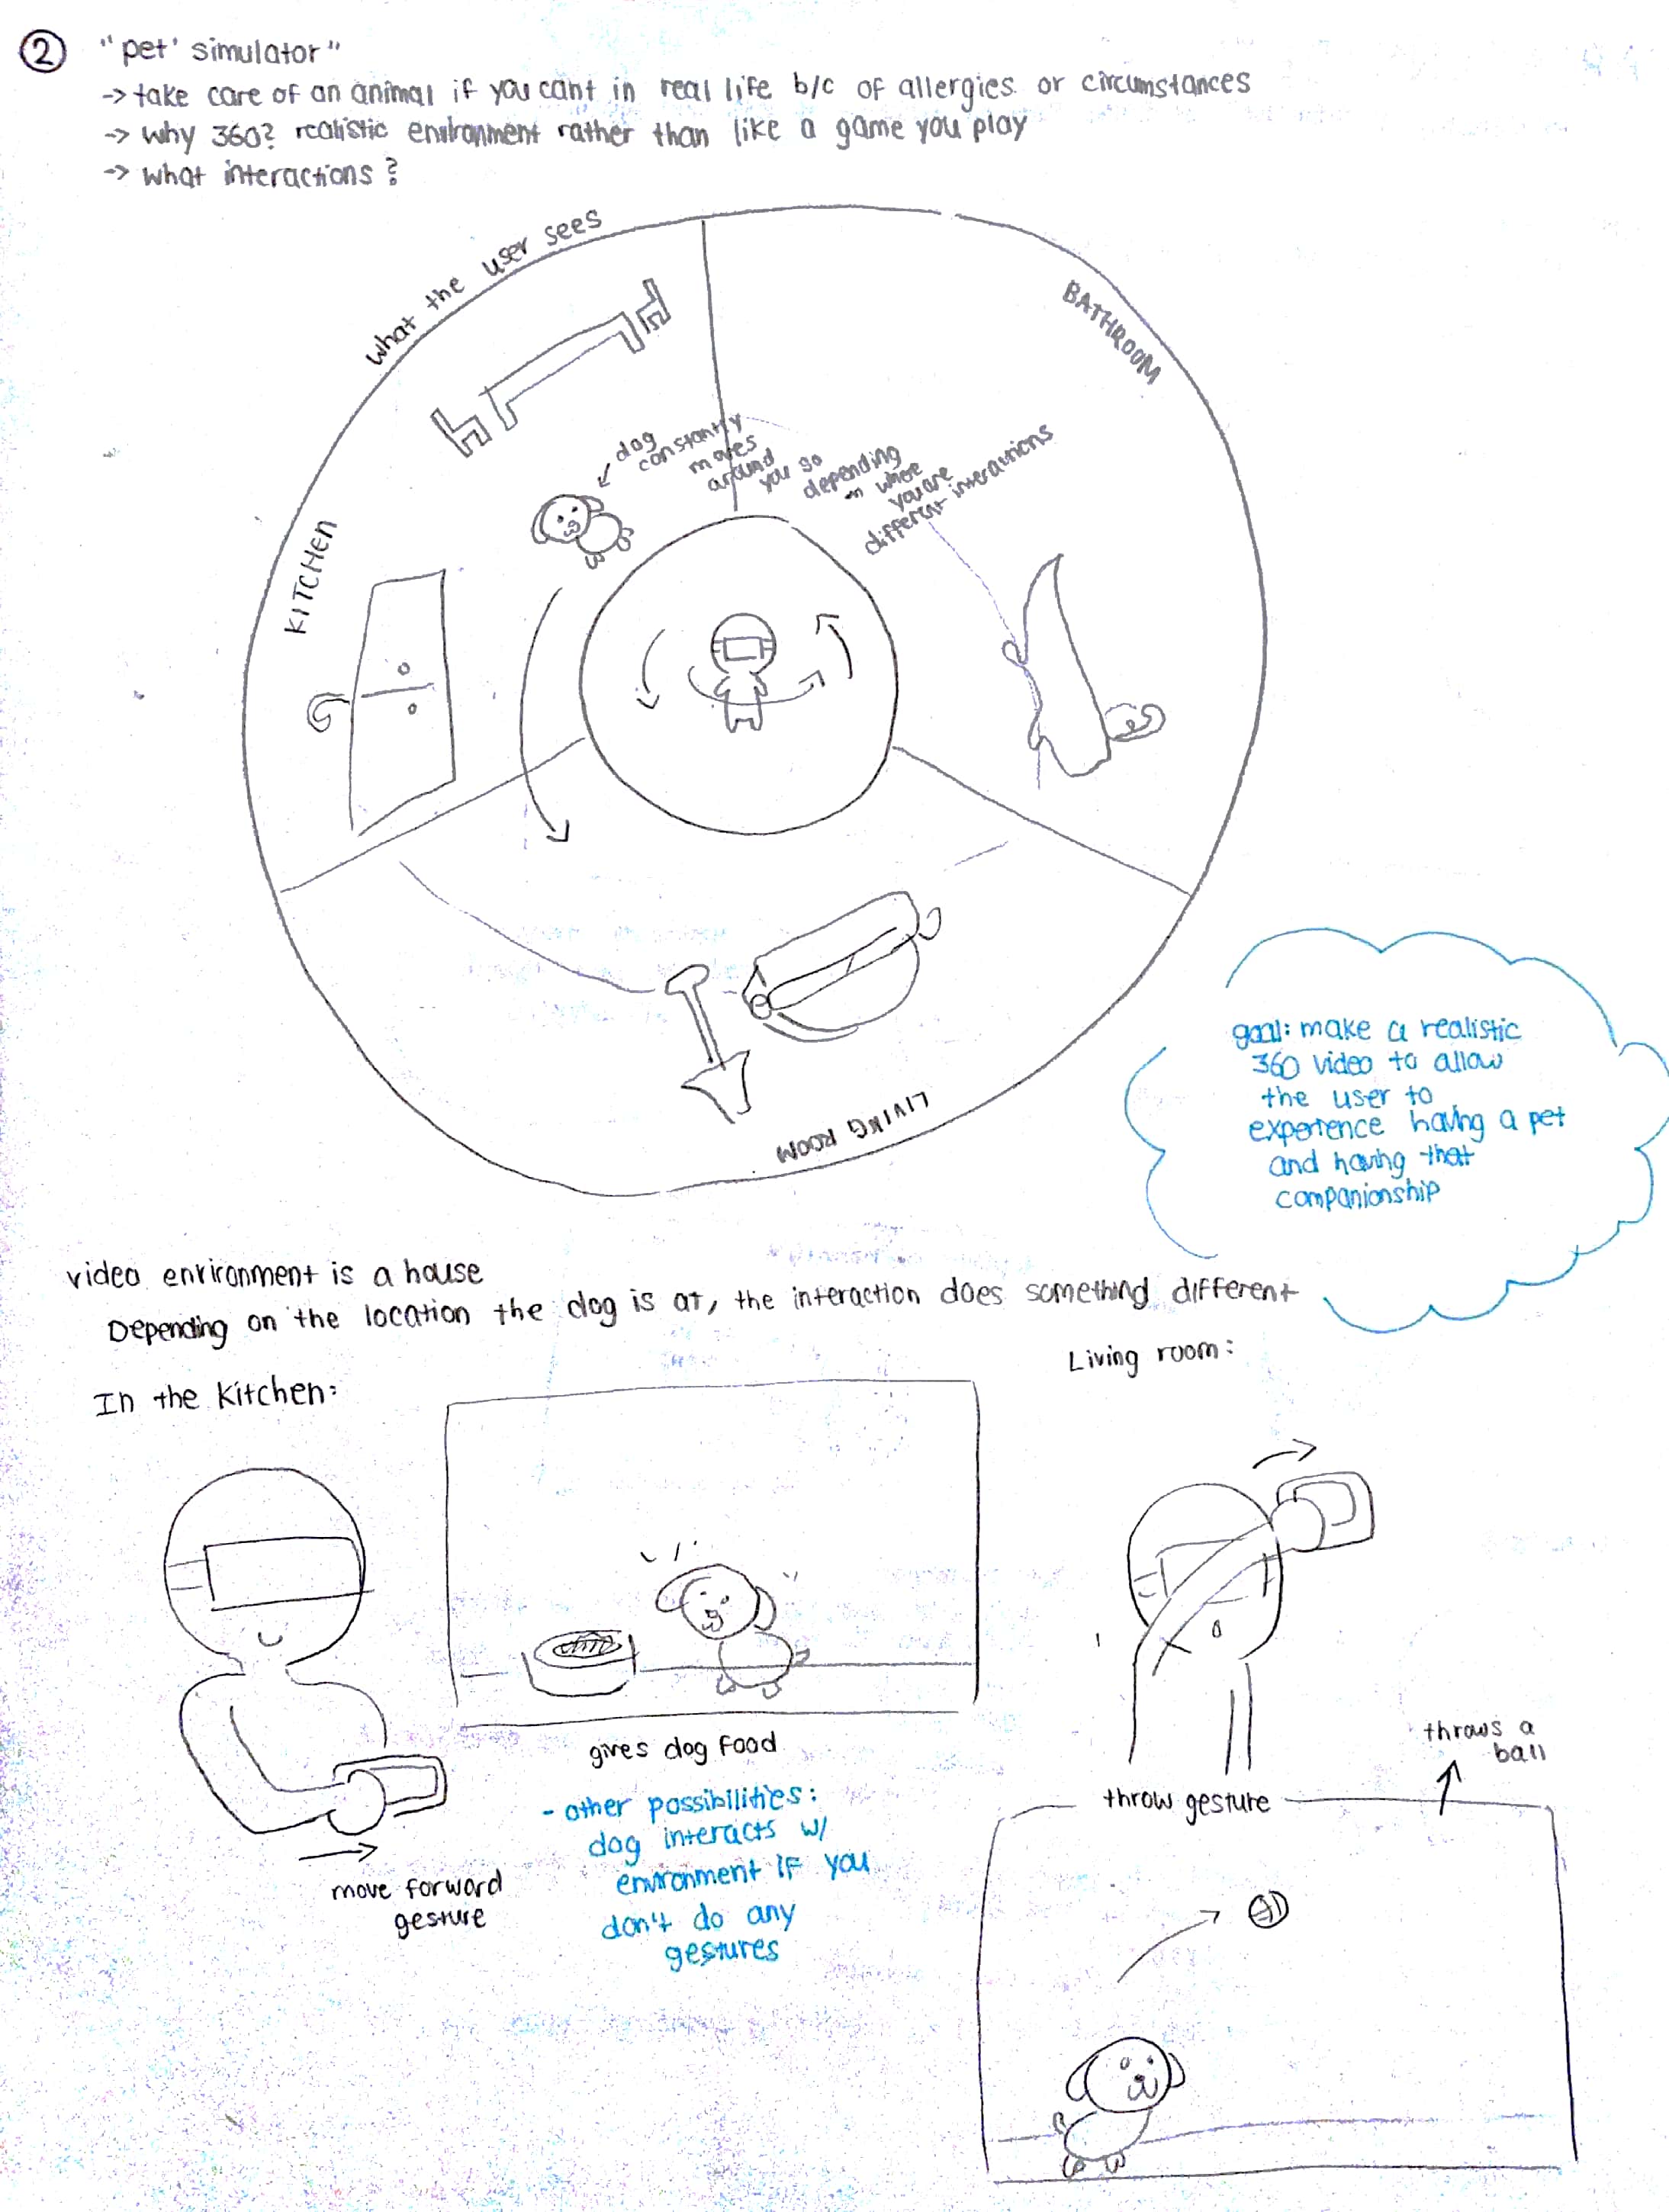 ② "pet' simulator"
-> take care of an animal if you cant in real life b/c of allergies or circumstances
-> why 360? realistic environment rather than like a game you play
-> what interactions?
what the user sees
BATHROOM
KITCHEN
dog
constantly
moves
around
you so
depending
on where
you are
different interactions
LIVING ROOM
goal: make a realistic
360 video to allow
the user to
experience having a pet
and having that
companionship
video environment is a house
Depending on the location the dog is at, the interaction does something different
In the kitchen:
Living room:
gives dog food
- other possibilities:
dog interacts w/
environment if you
don't do any
gestures
move forward
gesture
throws a
ball
throw gesture